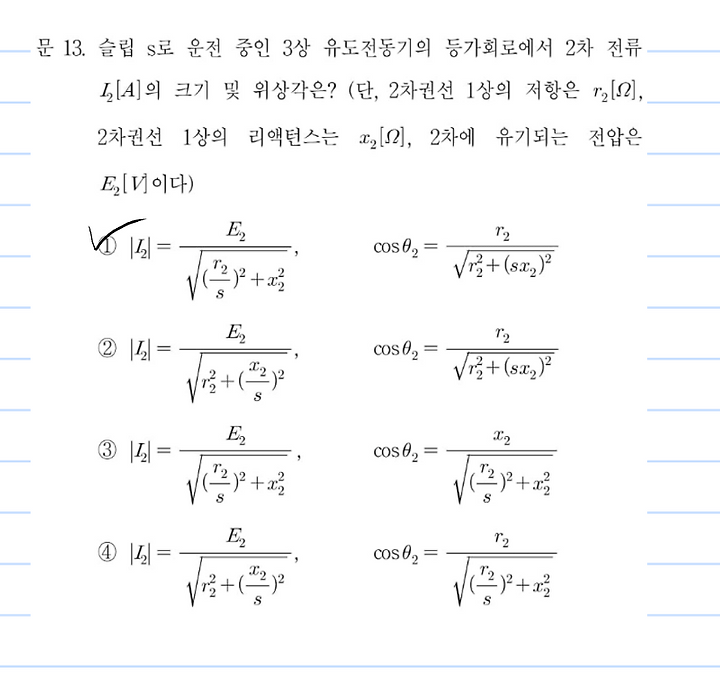 문 13. 슬립 s로 운전 중인 3상 유도전동기의 등가회로에서 2차 전류
I₂[A]의 크기 및 위상각은? (단, 2차권선 1상의 저항은 r₂[Ω],
2차권선 1상의 리액턴스는 x₂[Ω], 2차에 유기되는 전압은
E₂[V]이다)
① |I₂| = E₂ / √((r₂/s)² + x₂²), cosθ₂ = r₂ / √(r₂² + (sx₂)²)
② |I₂| = E₂ / √(r₂² + (x₂/s)²), cosθ₂ = r₂ / √(r₂² + (sx₂)²)
③ |I₂| = E₂ / √((r₂/s)² + x₂²), cosθ₂ = x₂ / √((r₂/s)² + x₂²)
④ |I₂| = E₂ / √(r₂² + (x₂/s)²), cosθ₂ = r₂ / √((r₂/s)² + x₂²)